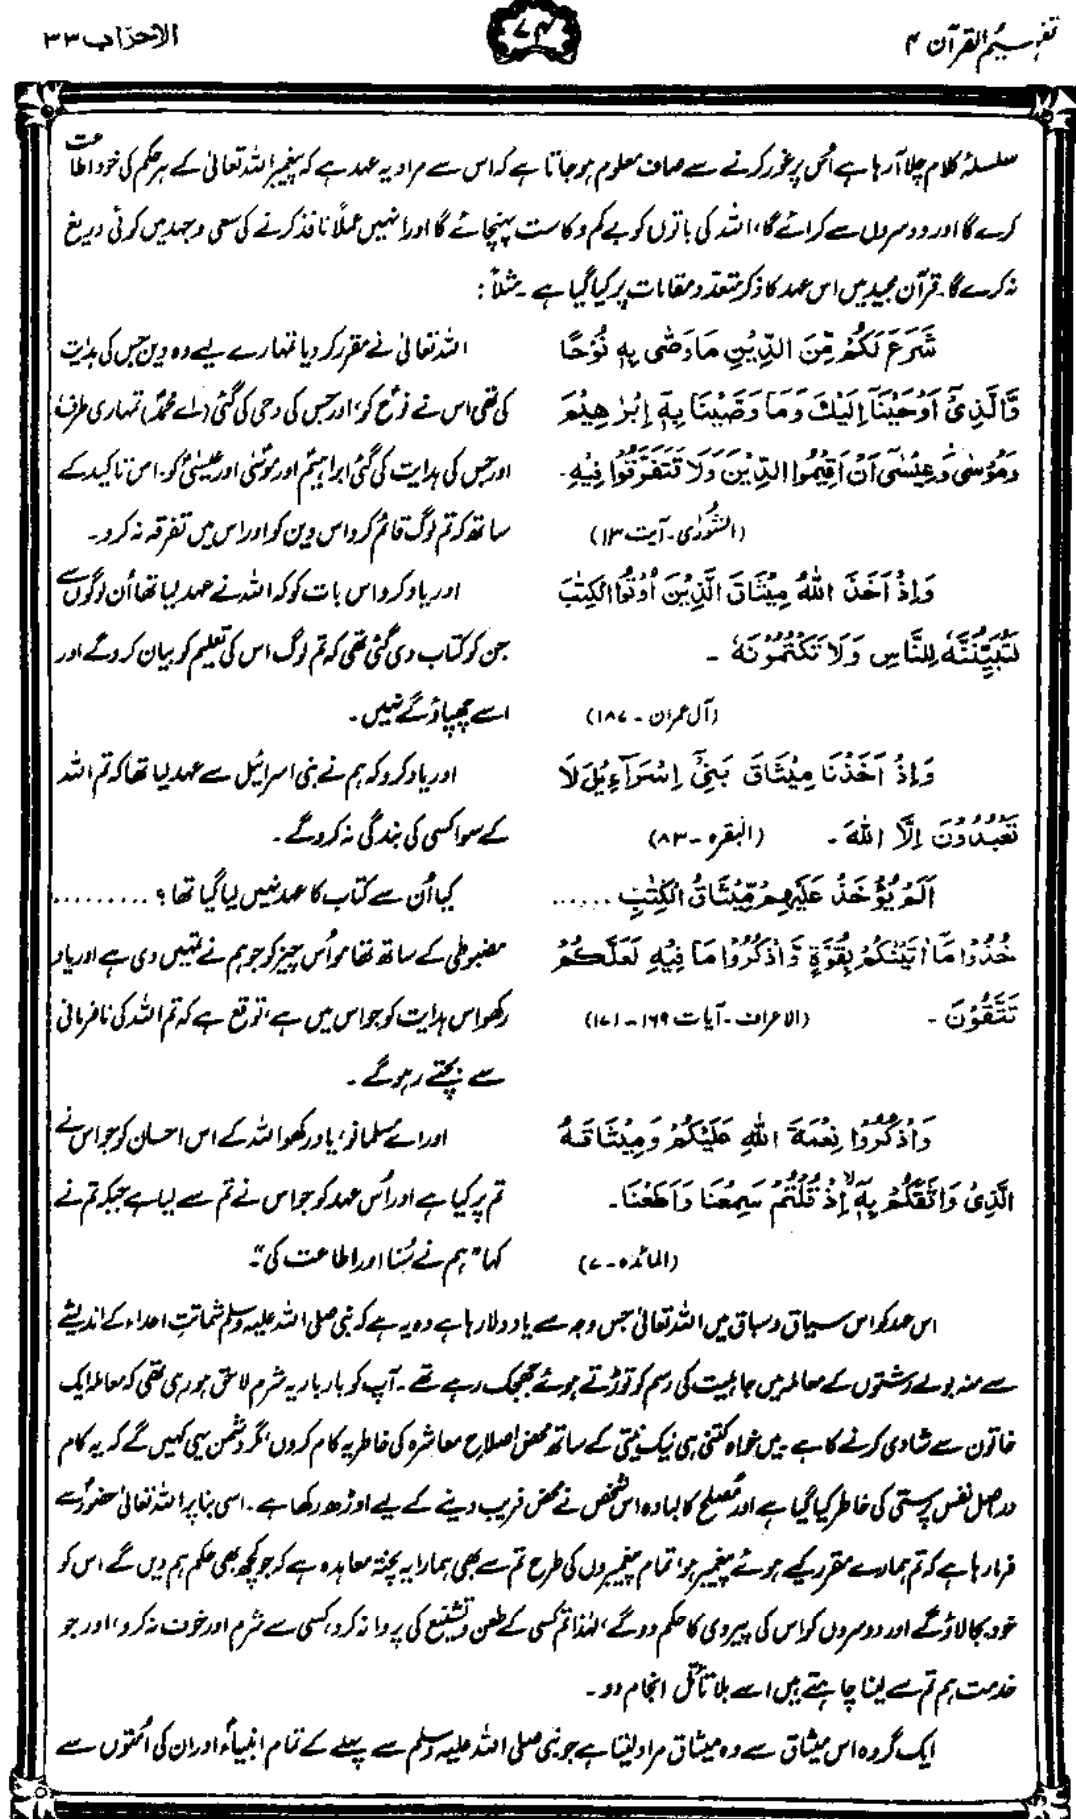 تفہیم القرآن ۴
۷۴
الاحزاب ۳۳
سلسلۂ کلام چلا آ رہا ہے اُس پر غور کرنے سے صاف معلوم ہو جاتا ہے کہ اس سے مراد یہ عہد ہے کہ پیغمبر اللہ تعالیٰ کے ہر حکم کی خود اطاعت
کرے گا اور دوسروں سے کرائے گا، اللہ کی باتوں کو بے کم و کاست پہنچائے گا اور انہیں عملاً نافذ کرنے کی سعی و جہد میں کوئی دریغ
نہ کرے گا۔ قرآن مجید میں اس عہد کا ذکر متعدد مقامات پر کیا گیا ہے۔ مثلاً:
شَرَعَ لَكُمْ مِّنَ الدِّيْنِ مَا وَصّٰى بِهٖ نُوْحًا
وَّالَّذِىْٓ اَوْحَيْنَآ اِلَيْكَ وَمَا وَصَّيْنَا بِهٖٓ اِبْرٰهِيْمَ
وَمُوْسٰى وَعِيْسٰٓى اَنْ اَقِيْمُوا الدِّيْنَ وَلَا تَتَفَرَّقُوْا فِيْهِ۔
(الشُّوریٰ۔ آیت ۱۳)
اللہ تعالیٰ نے مقرر کر دیا تمہارے لیے وہ دین جس کی ہدایت
کی تھی اس نے نوحؑ کو، اور جس کی وحی کی گئی (اے محمدؐ) تمہاری طرف،
اور جس کی ہدایت کی گئی ابراہیمؑ اور موسٰیؑ اور عیسٰیؑ کو۔ اس تاکید کے
ساتھ کہ تم لوگ قائم کرو اس دین کو اور اس میں تفرقہ نہ کرو۔
وَاِذْ اَخَذَ اللّٰهُ مِيْثَاقَ الَّذِيْنَ اُوْتُوا الْكِتٰبَ
لَتُبَيِّنُنَّهٗ لِلنَّاسِ وَلَا تَكْتُمُوْنَهٗ ۔
(آل عمران۔ ۱۸۷)
اور یاد کرو اس بات کو کہ اللہ نے عہد لیا تھا اُن لوگوں سے
جن کو کتاب دی گئی تھی کہ تم لوگ اس کی تعلیم کو بیان کرو گے اور
اسے چھپاؤ گے نہیں۔
وَاِذْ اَخَذْنَا مِيْثَاقَ بَنِيْٓ اِسْرَآءِيْلَ لَا
تَعْبُدُوْنَ اِلَّا اللّٰهَ ۔ (البقرہ۔ ۸۳)
اور یاد کرو کہ ہم نے بنی اسرائیل سے عہد لیا تھا کہ تم اللہ
کے سوا کسی کی بندگی نہ کرو گے۔
اَلَمْ يُؤْخَذْ عَلَيْهِمْ مِّيْثَاقُ الْكِتٰبِ ......
خُذُوْا مَآ اٰتَيْنٰكُمْ بِقُوَّةٍ وَّاذْكُرُوْا مَا فِيْهِ لَعَلَّكُمْ
تَتَّقُوْنَ ۔ (الاعراف۔ آیات ۱۶۹-۱۷۱)
کیا اُن سے کتاب کا عہد نہیں لیا گیا تھا؟ .........
مضبوطی کے ساتھ تھامو اُس چیز کو جو ہم نے تمہیں دی ہے اور یاد
رکھو اس ہدایت کو جو اس میں ہے، توقع ہے کہ تم اللہ کی نافرمانی
سے بچتے رہو گے۔
وَاذْكُرُوْا نِعْمَةَ اللّٰهِ عَلَيْكُمْ وَمِيْثَاقَهُ
الَّذِىْ وَاثَقَكُمْ بِهٖٓ اِذْ قُلْتُمْ سَمِعْنَا وَاَطَعْنَا۔
(المائدہ۔ ۷)
اور اے مسلمانو! یاد رکھو اللہ کے اس احسان کو جو اس نے
تم پر کیا ہے اور اُس عہد کو جو اس نے تم سے لیا ہے جبکہ تم نے
کہا "ہم نے سُنا اور اطاعت کی"۔
اس عہد کو اس سیاق و سباق میں اللہ تعالیٰ جس وجہ سے یاد دلا رہا ہے وہ یہ ہے کہ نبی صلی اللہ علیہ وسلم شماتتِ اعداء کے اندیشے
سے منہ بولے رشتوں کے معاملہ میں جاہلیت کی رسم کو توڑتے ہوئے جھجک رہے تھے۔ آپ کو بار بار یہ شرم لاحق ہو رہی تھی کہ معاملہ ایک
خاتون سے شادی کرنے کا ہے۔ میں خواہ کتنی ہی نیک نیتی کے ساتھ محض اصلاح معاشرہ کی خاطر یہ کام کروں، مگر دشمن یہی کہیں گے کہ یہ کام
دراصل نفس پرستی کی خاطر کیا گیا ہے اور مُصلح کا لبادہ اس شخص نے محض فریب دینے کے لیے اوڑھ رکھا ہے۔ اسی بنا پر اللہ تعالیٰ حضورؐ سے
فرما رہا ہے کہ تم ہمارے مقرر کیے ہوئے پیغمبر ہو، تمام پیغمبروں کی طرح تم سے بھی ہمارا یہ پختہ معاہدہ ہے کہ جو کچھ بھی حکم ہم دیں گے اس کو
خود بجا لاؤ گے اور دوسروں کو اس کی پیروی کا حکم دو گے، لہٰذا تم کسی کے طعن و تشنیع کی پروا نہ کرو، کسی سے شرم اور خوف نہ کرو، اور جو
خدمت ہم تم سے لینا چاہتے ہیں اسے بلا تأمّل انجام دو۔
ایک گروہ اس میثاق سے وہ میثاق مراد لیتا ہے جو نبی صلی اللہ علیہ وسلم سے پہلے کے تمام انبیاءؑ اور ان کی اُمتوں سے